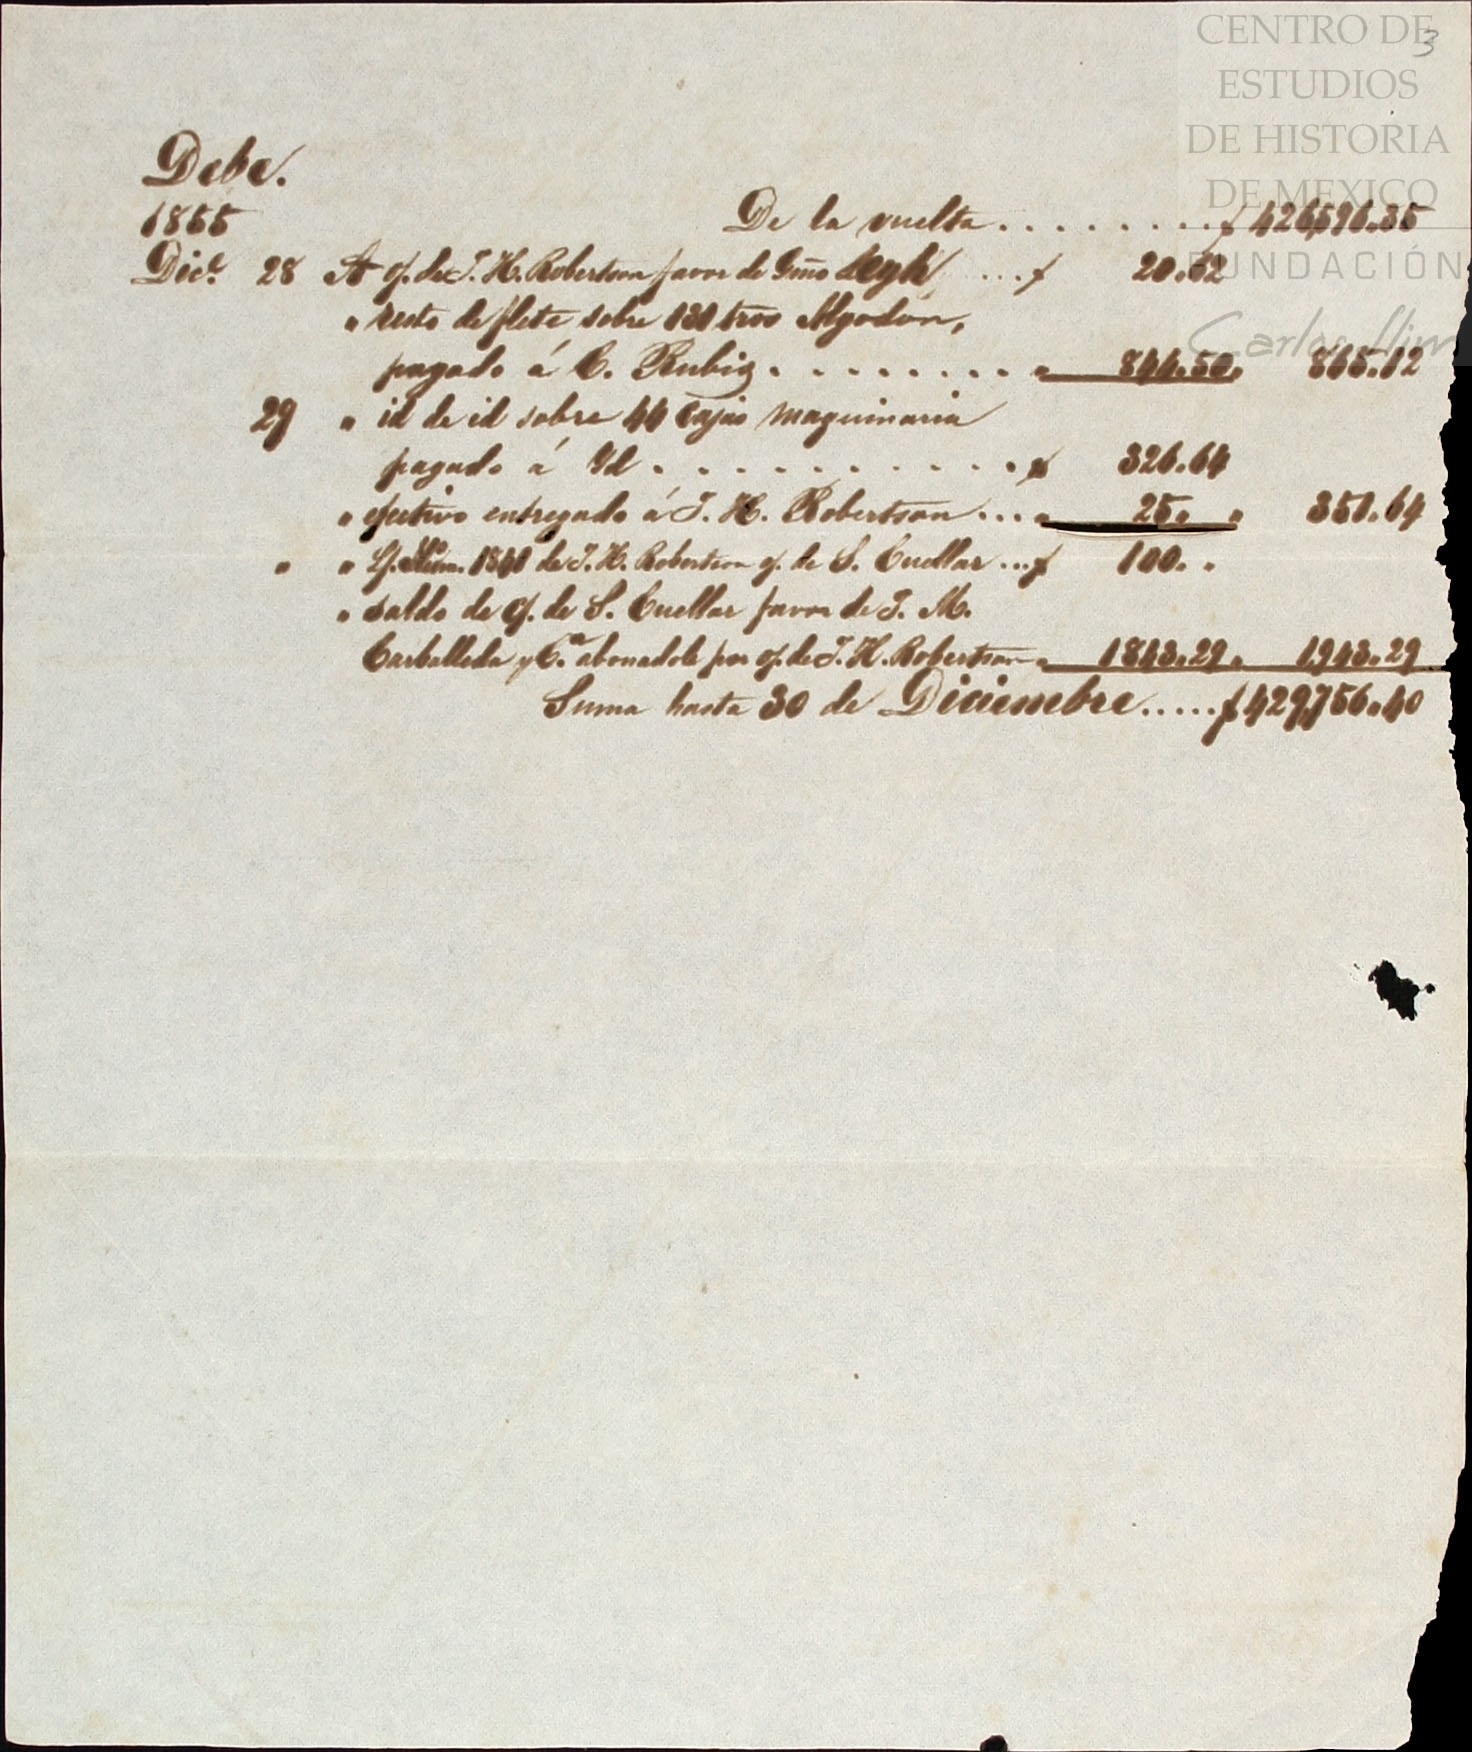 CENTRO DE
ESTUDIOS
DE HISTORIA
DE MEXICO
FUNDACIÓN
Carlos Slim
3
Debe.
1855
De la vuelta . . . . . . . . . $ 426,596.35
Dice. 28 A o/. de J. H. Robertson favor de Gmo ... $ 20.62
" resto de flete sobre 131 tros Algodon,
pagado á C. Rubio . . . . . . . . " 844.50. 865.12
29 " id de id sobre 44 cajas maquinaria
pagado á Id . . . . . . . . . . . $ 326.64
" efectivo entregado á J. H. Robertson ... " 25. " 351.64
" " L/. Núm. 1841 de J. H. Robertson o/. de S. Cuellar ... $ 100. "
" saldo de o/. de S. Cuellar favor de J. M.
Carballeda y Ca. abonadole por o/. de J. H. Robertson " 1843.29. 1,943.29
Suma hasta 30 de Diciembre ..... $ 429,756.40